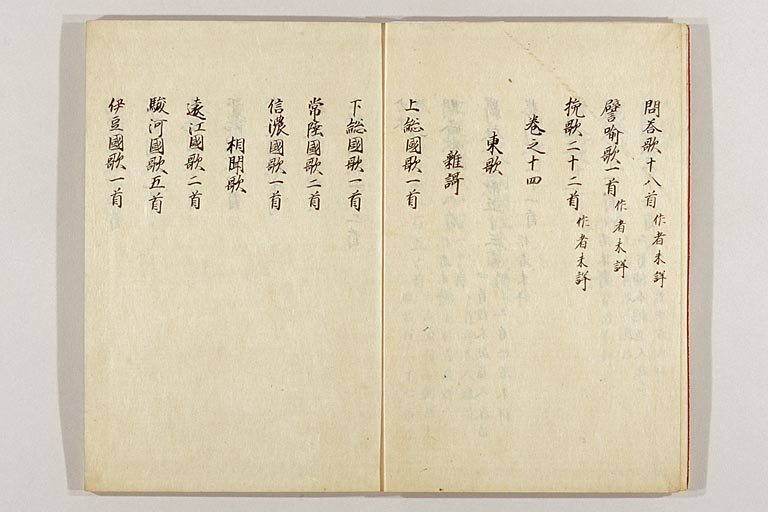 問荅歌十八首 作者未詳
譬喻歌一首 作者未詳
挽歌二十二首 作者未詳
卷之十四
東歌
雜謌
上総國歌一首
下総國歌一首
常陸國歌二首
信濃國歌一首
相聞歌
遠江國歌二首
駿河國歌五首
伊豆國歌一首